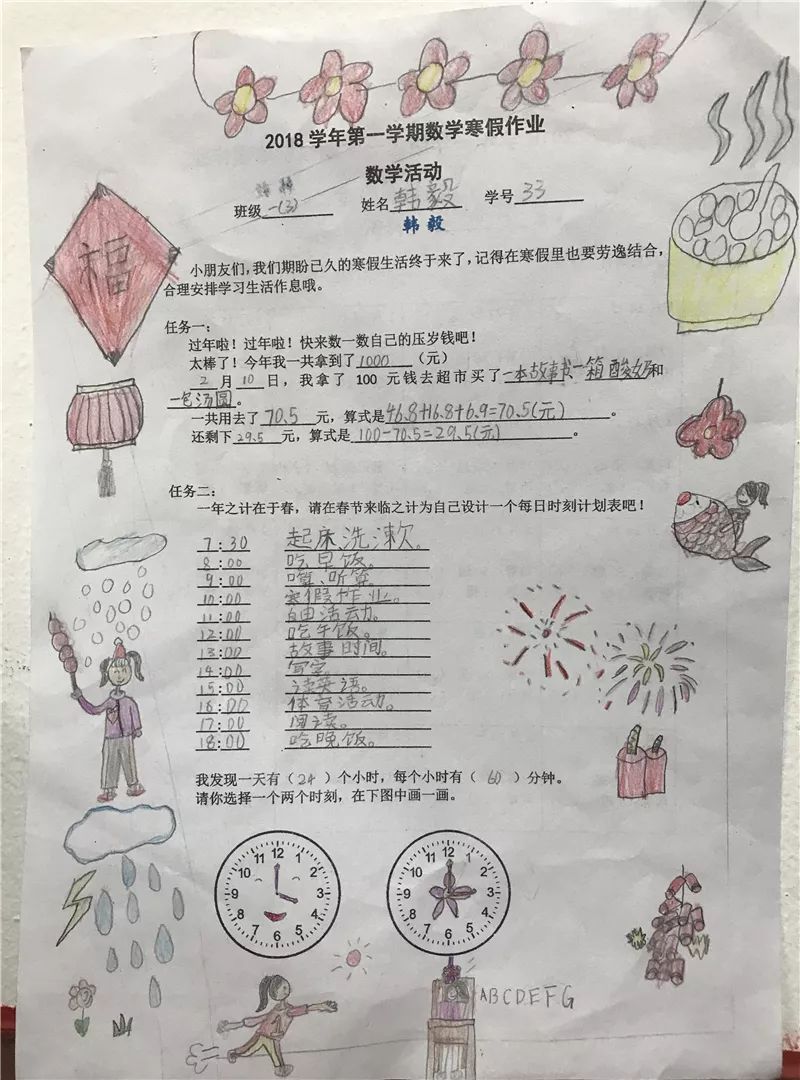 福
2018 学年第一学期数学寒假作业
数学活动
班级 一(3) 姓名 韩毅 学号 33
韩 毅
小朋友们，我们期盼已久的寒假生活终于来了，记得在寒假里也要劳逸结合，
合理安排学习生活作息哦。
任务一：
过年啦！过年啦！快来数一数自己的压岁钱吧！
太棒了！今年我一共拿到了 1000 （元）
2 月 10 日，我拿了 100 元钱去超市买了 一本故事书、一箱酸奶 和
一包汤圆。
一共用去了 70.5 元，算式是 46.8+16.8+6.9=70.5(元)。
还剩下 29.5 元，算式是 100-70.5=29.5(元)。
任务二：
一年之计在于春，请在春节来临之计为自己设计一个每日时刻计划表吧！
7:30 起床洗漱。
8:00 吃早饭。
9:00 算、听算。
10:00 寒假作业。
11:00 自由活动。
12:00 吃午饭。
13:00 故事时间。
14:00 写字。
15:00 读英语。
16:00 体育活动。
17:00 阅读。
18:00 吃晚饭。
我发现一天有（ 24 ）个小时，每个小时有（ 60 ）分钟。
请你选择一个两个时刻，在下图中画一画。
12 1 2 3 4 5 6 7 8 9 10 11
12 1 2 3 4 5 6 7 8 9 10 11
ABCDEFG